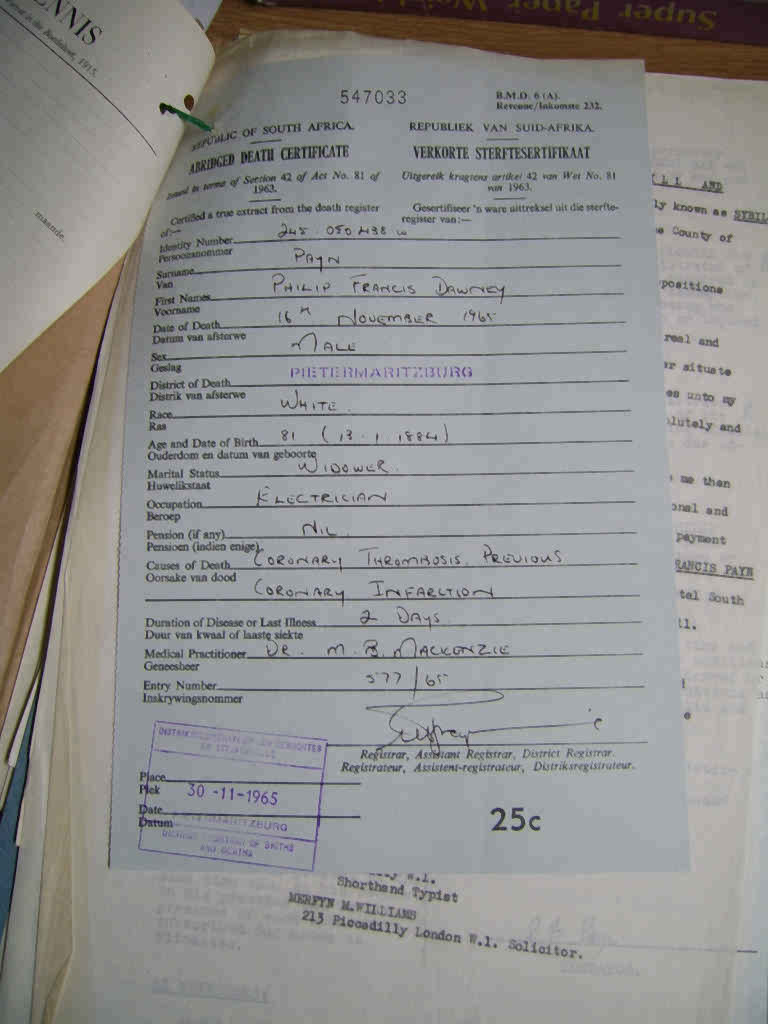 Super Paper
ENNIS
1915.
maunde.
547033
B.M.D. 6 (A).
Revenue/Inkomste 232.
REPUBLIC OF SOUTH AFRICA.
REPUBLIEK VAN SUID-AFRIKA.
ABRIDGED DEATH CERTIFICATE
VERKORTE STERFTESERTIFIKAAT
Issued in terms of Section 42 of Act No. 81 of
1963.
Uitgereik kragtens artikel 42 van Wet No. 81
van 1963.
Certified a true extract from the death register
of:—
Gesertifiseer 'n ware uittreksel uit die sterfte-
register van:—
Identity Number 245 050438 W
Persoonsnommer
Surname PAYN
Van
First Names PHILIP FRANCIS DAWNEY
Voorname
Date of Death 16TH NOVEMBER 1965
Datum van afsterwe
Sex MALE
Geslag
District of Death PIETERMARITZBURG
Distrik van afsterwe
Race WHITE.
Ras
Age and Date of Birth 81 (13.1.1884)
Ouderdom en datum van geboorte
Marital Status WIDOWER.
Huwelikstaat
Occupation ELECTRICIAN
Beroep
Pension (if any) NIL.
Pensioen (indien enige)
Causes of Death CORONARY THROMBOSIS. PREVIOUS
Oorsake van dood CORONARY INFARCTION
Duration of Disease or Last Illness 2 DAYS.
Duur van kwaal of laaste siekte
Medical Practitioner DR. M. B. MACKENZIE
Geneesheer
Entry Number 577/65
Inskrywingsnommer
Registrar, Assistant Registrar, District Registrar.
Registrateur, Assistent-registrateur, Distriksregistrateur.
Place
Plek
30 -11-1965
Date
Datum
PIETERMARITZBURG
OF BIRTHS
AND DEATHS
25c
AND
ly known as SYBIL
County of
positions
real and
situate
es unto my
lutely and
me then
onal and
payment
FRANCIS PAYN
tal South
W.1.
Shorthand Typist
MERFYN M.WILLIAMS
213 Piccadilly London W.1. Solicitor.